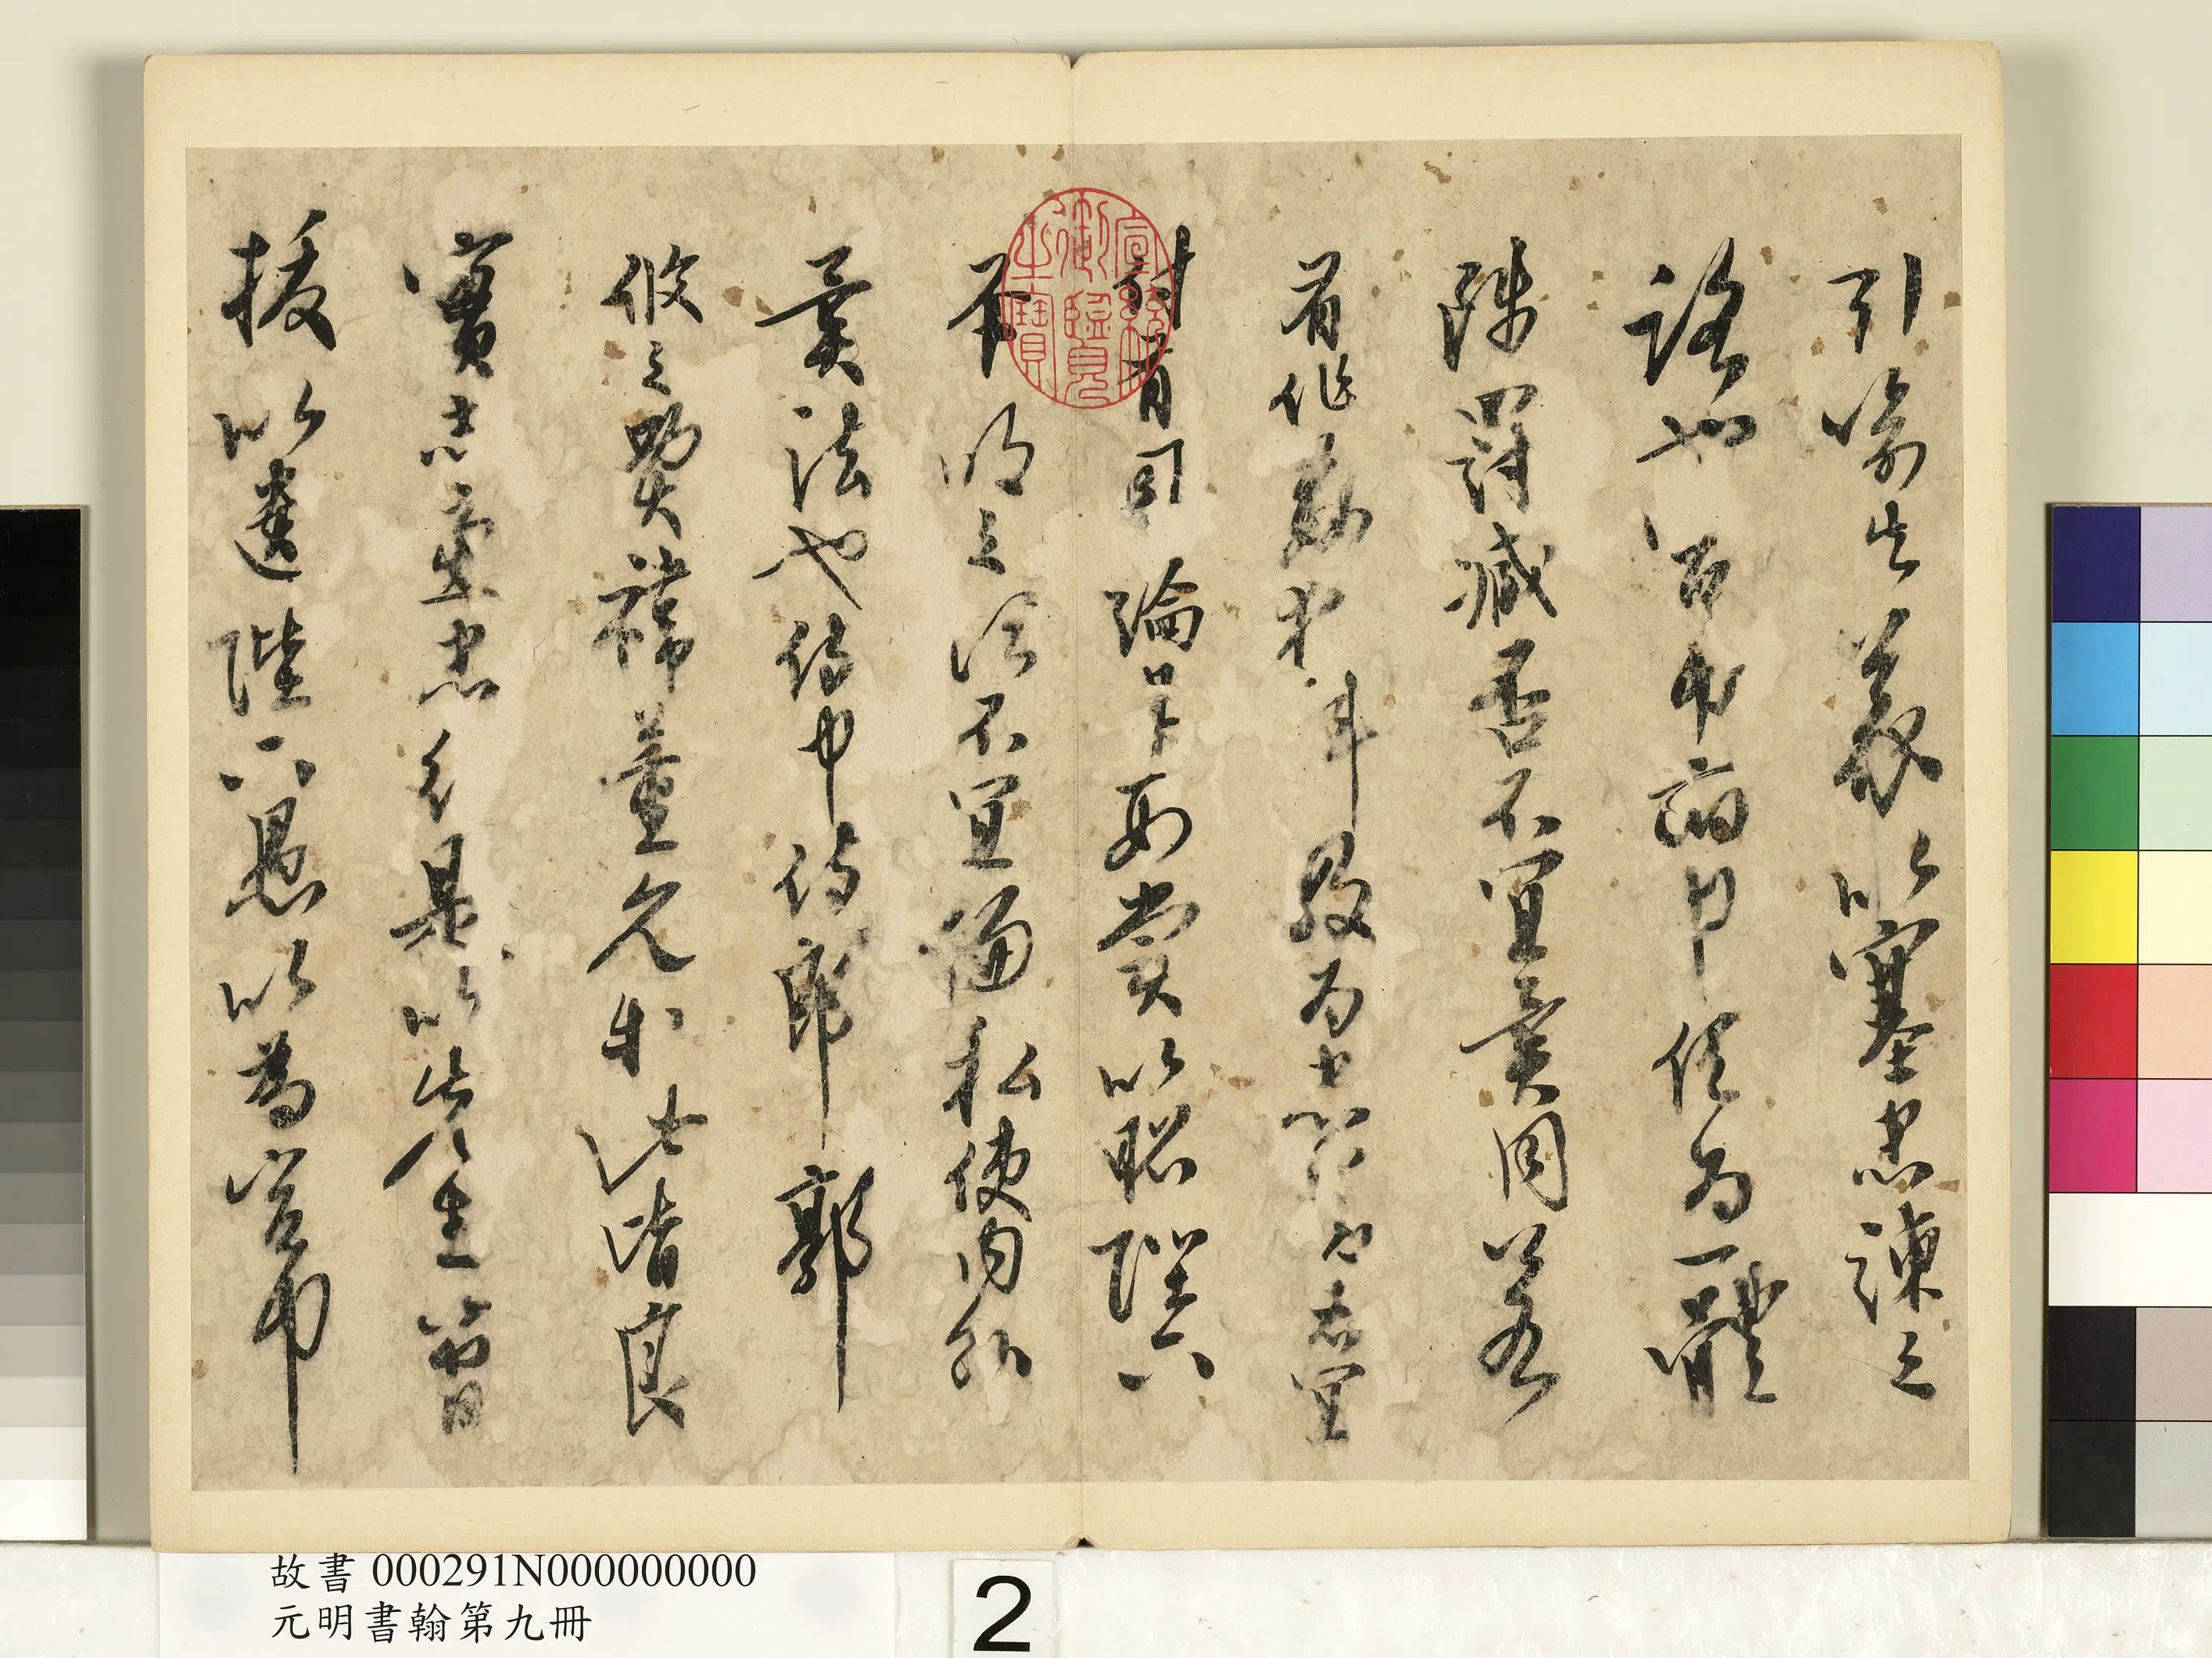 引喻失義以塞忠諫之
路也宮中府中俱為一體
陟罰臧否不宜異同若
有作姦犯科及為忠善者宜
付有司論其刑賞以昭陛下
平明之治不宜偏私使內外
異法也侍中侍郎郭
攸之費禕董允等此皆良
實志慮忠純是以先帝簡
拔以遺陛下愚以為宮中
宣統御覽之寶
故書 000291N000000000
元明書翰第九冊
2